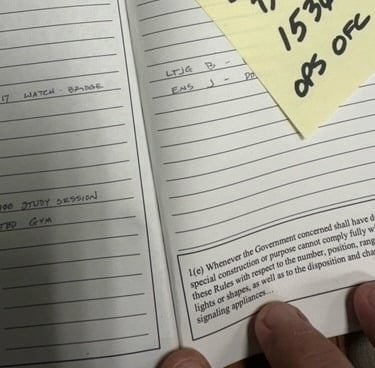 17 WATCH - BRIDGE
00 STUDY SESSION
GYM
153
OPS OFC
LTJG B -
ENS J -
1(e) Whenever the Government concerned shall have d
special construction or purpose cannot comply fully w
these Rules with respect to the number, position, rang
lights or shapes, as well as to the disposition and cha
signaling appliances...